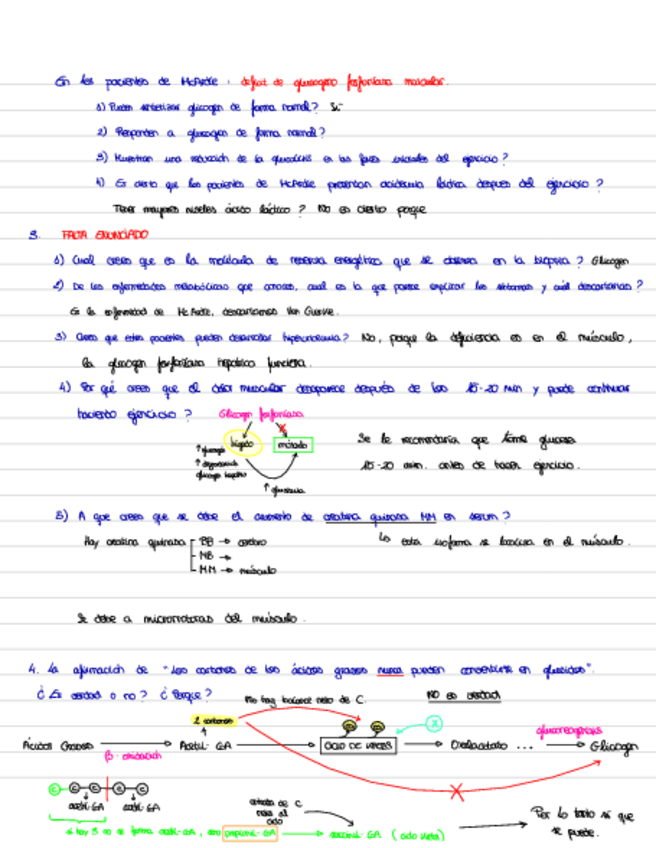 En los pacientes de McArdle : deficit de glucogeno fosforilasa muscular.
1) Pueden sintetizar glicogen de forma normal? Si
2) Responden a glucagon de forma normal?
3) Muestran una reducción de la glucolisis en las fases iniciales del ejercicio?
4) Es cierto que los pacientes de McArdle presentan acidemia láctica después del ejercicio?
Tener mayores niveles ácido láctico? No es cierto porque
3. FALTA ENUNCIADO
1) Cual crees que es la molécula de reserva energética que se observa en la biopsia? Glicogen
2) De las enfermedades metabólicas que conoces, cual es la que parece explicar los síntomas y cuál descartarias?
Es la enfermedad de McArdle, descartamos Von Gierke.
3) Crees que estos pacientes pueden desarrollar hiperuricemia? No, porque la deficiencia es en el músculo,
la glucogen fosforilasa hepática funciona.
4) Por qué crees que el dolor muscular desaparece después de los 15-20 min y puede continuar
haciendo ejercicio?
Glicogen fosforilasa
hígado
músculo
↑ glucagon
↑ degradació
glucogen hepático
↑ glucemia
Se le recomendaría que tome glucosa
15-20 min. antes de hacer ejercicio.
5) A que crees que se debe el aumento de creatina quinasa MM en serum?
Hay creatina quinasa
BB → cerebro
MB →
MM → músculo
Lo esta isoforma se localiza en el músculo.
Se debe a microrroturas del músculo.
4. La afirmación de "Los carbonos de los ácidos grasos nunca pueden convertirse en glúcidos".
¿Es verdad o no? ¿Porque?
No hay balance neto de C.
NO es verdad
2 carbonos
Ácidos Grasos
β-oxidación
Acetil-CoA
CICLO DE KREBS
Oxalactato ...
gluconeogenesis
Glicogen
acetil-CoA
acetil-CoA
entrada de C
neta al
ciclo
si hay 3 no se forma acetil-CoA, sino propionil-CoA
succinil-CoA (ciclo Krebs)
Por lo tanto si que
se puede.